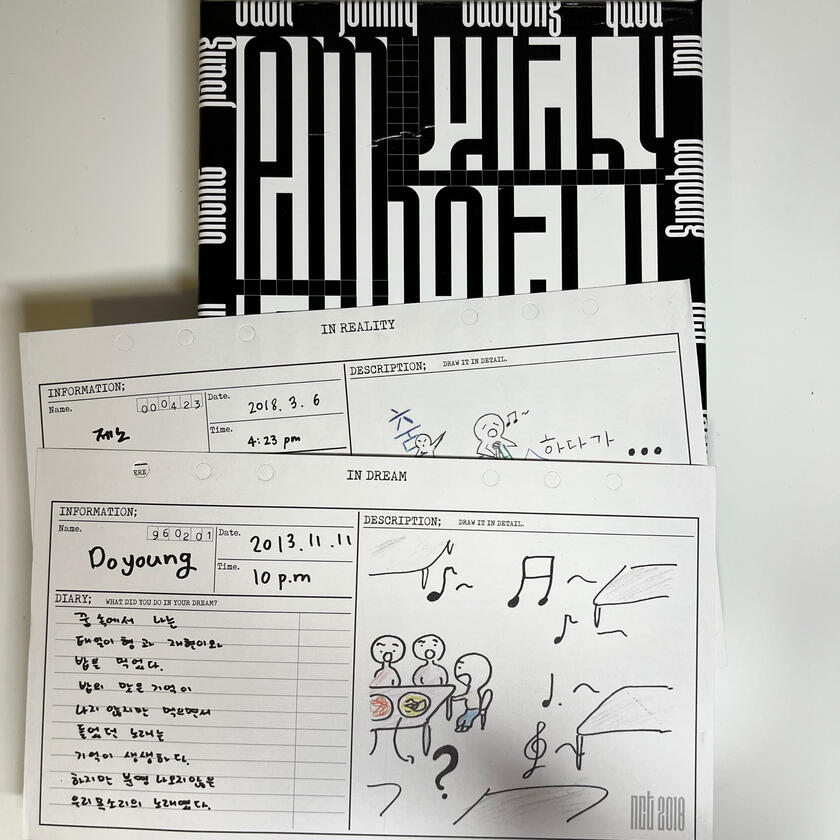 johnny
taeyong
yuta
jisung
chenle
winwin
IN REALITY
INFORMATION;
Name.
000423
제노
Date.
2018. 3. 6
Time.
4:23 pm
DESCRIPTION; DRAW IT IN DETAIL.
춤
하다가 •••
IN DREAM
INFORMATION;
Name.
960201
Doyoung
Date.
2013.11.11
Time.
10 p.m
DIARY; WHAT DID YOU DO IN YOUR DREAM?
꿈 속에서 나는
태일이 형과 재현이와
밥을 먹었다.
밥의 맛은 기억이
나지 않지만 먹으면서
들었던 노래는
기억이 생생하다.
하지만 분명 나오지않은
우리 목소리의 노래였다.
DESCRIPTION; DRAW IT IN DETAIL.
?
nct 2018